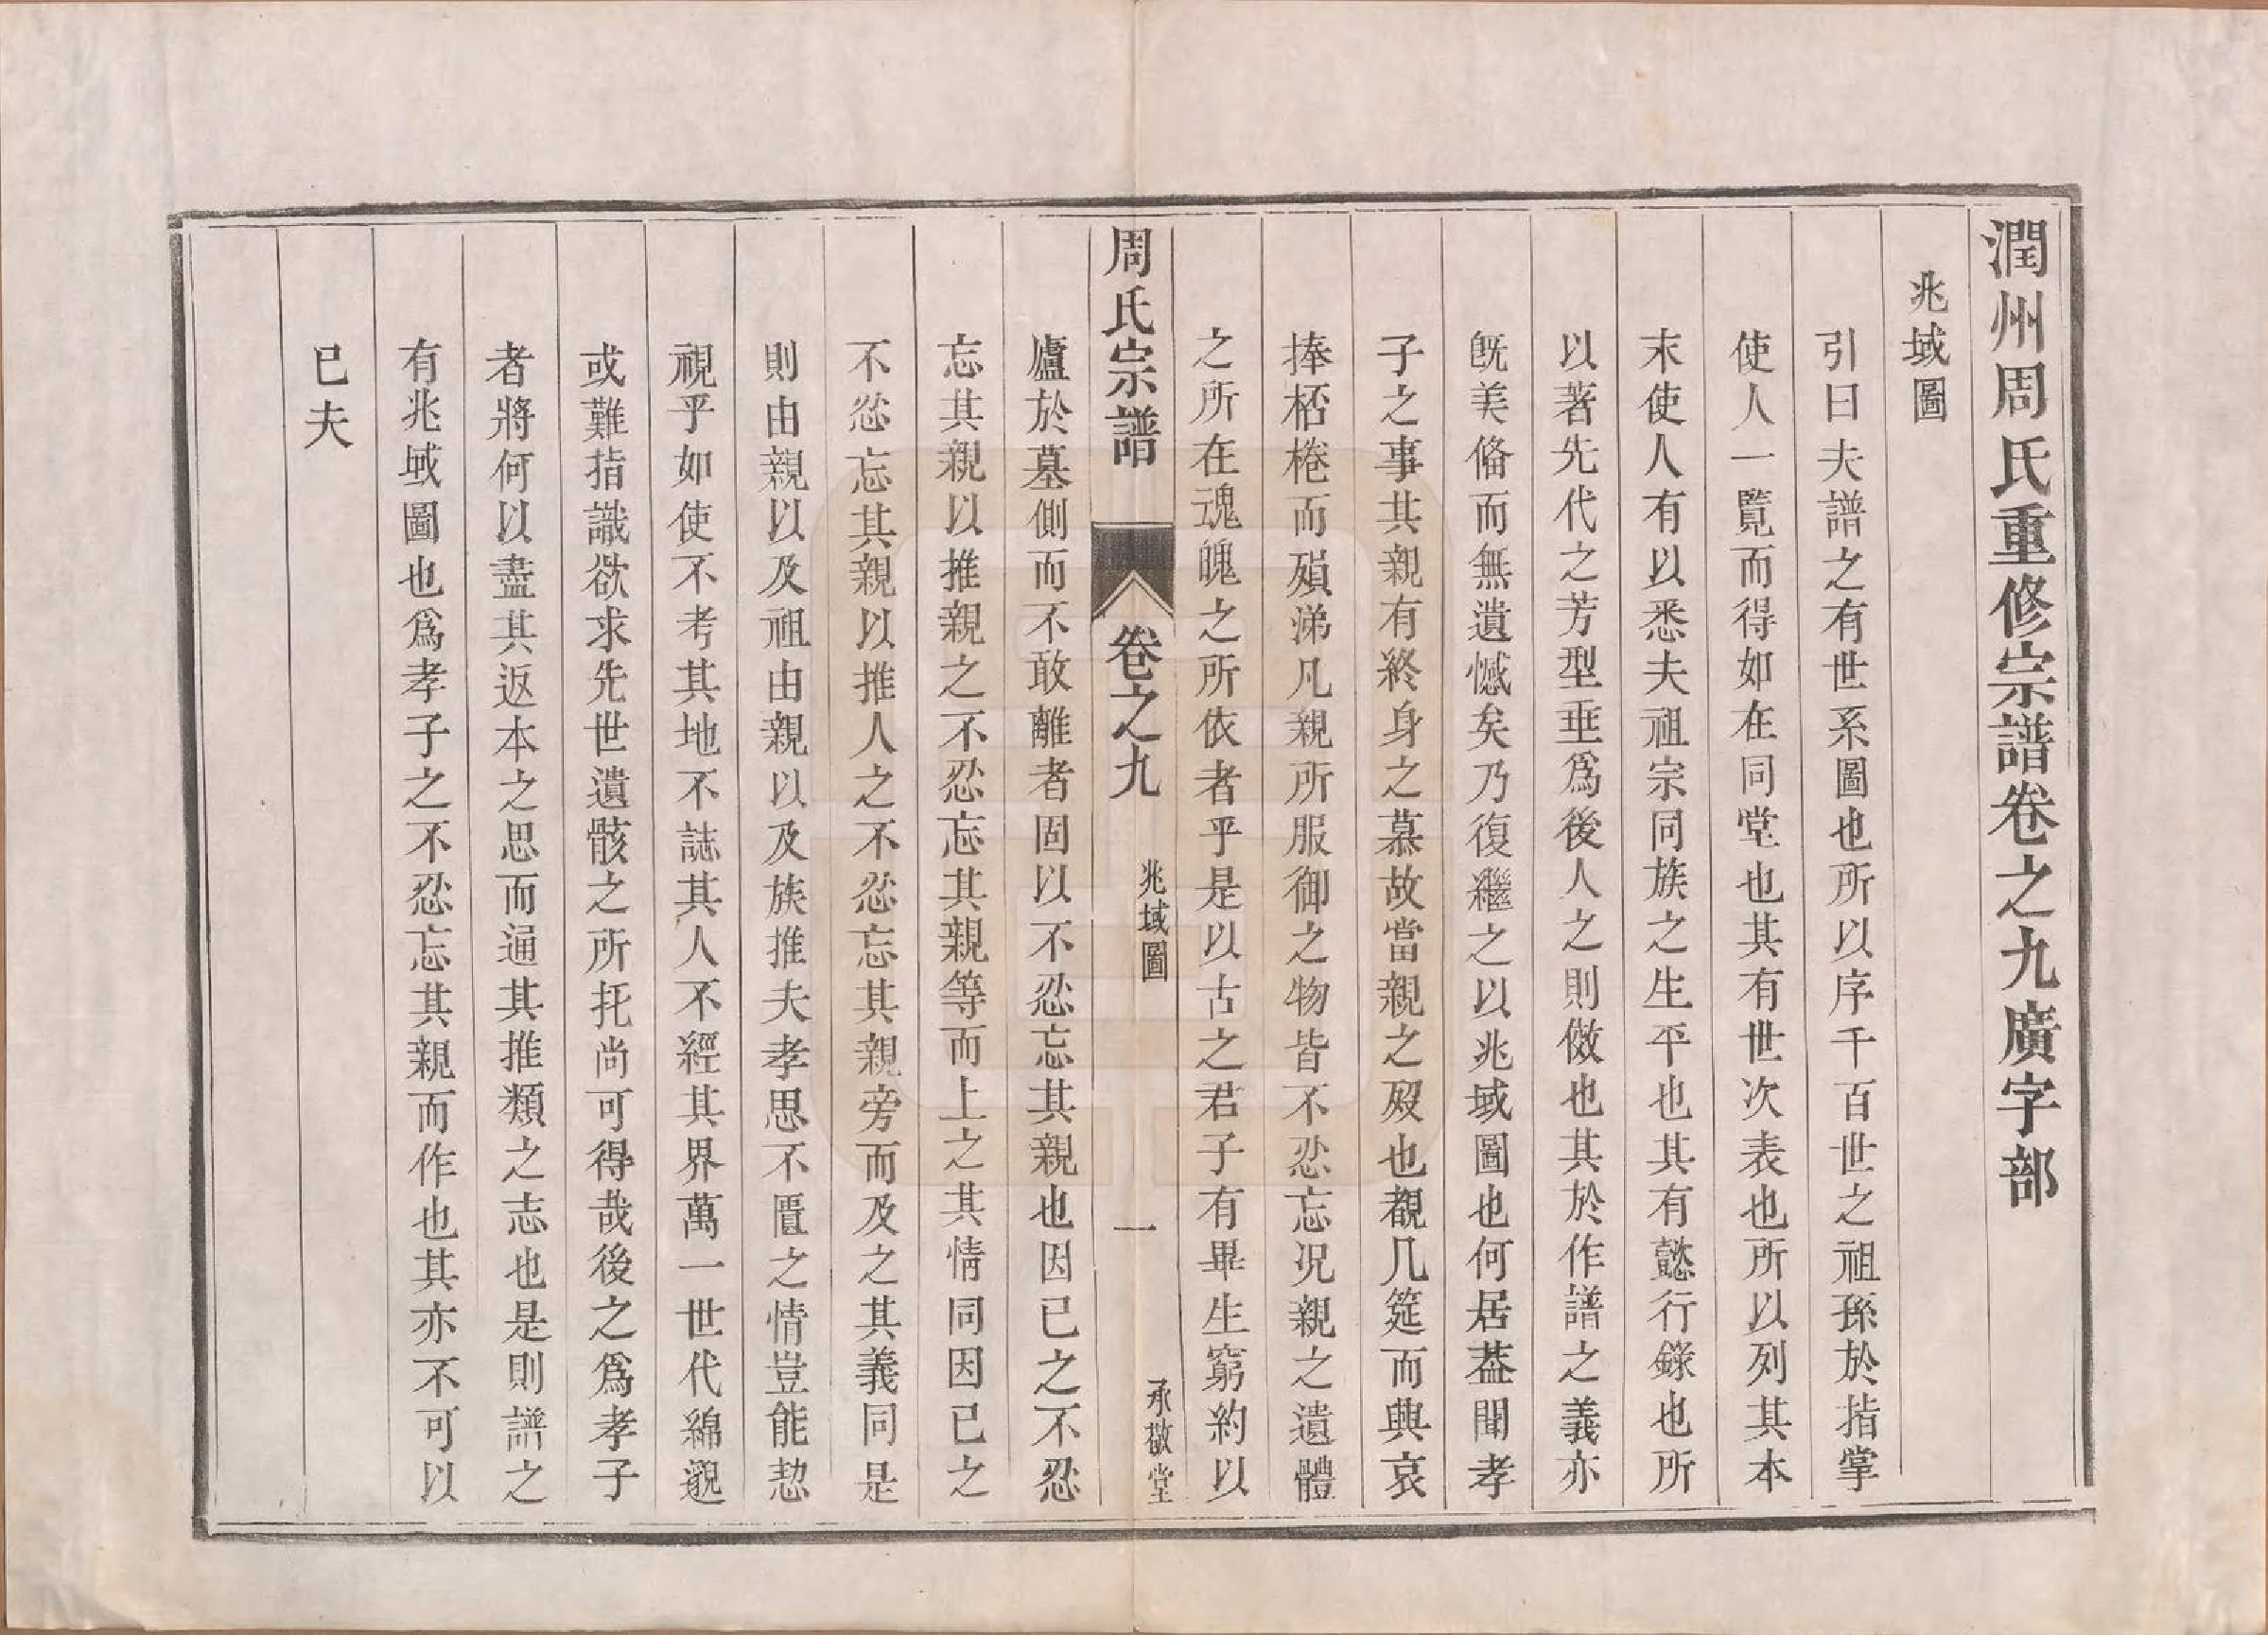 潤州周氏重修宗譜卷之九廣字部
兆域圖
引曰夫譜之有世系圖也所以序千百世之祖孫於指掌
使人一覽而得如在同堂也其有世次表也所以列其本
末使人有以悉夫祖宗同族之生平也其有懿行錄也所
以著先代之芳型垂爲後人之則傚也其於作譜之義亦
旣美偹而無遺憾矣乃復繼之以兆域圖也何居葢聞孝
子之事其親有終身之慕故當親之歿也覩几筵而興哀
捧桮棬而殞涕凡親所服御之物皆不忍忘况親之遺體
之所在魂魄之所依者乎是以古之君子有畢生窮約以
周氏宗譜
卷之九
兆域圖
一
承啟堂
廬於墓側而不敢離者固以不忍忘其親也因已之不忍
忘其親以推親之不忍忘其親等而上之其情同因已之
不忍忘其親以推人之不忍忘其親旁而及之其義同是
則由親以及祖由親以及族推夫孝思不匱之情豈能恝
視乎如使不考其地不誌其人不經其界萬一世代綿邈
或難指識欲求先世遺骸之所托尚可得哉後之爲孝子
者將何以盡其返本之思而通其推類之志也是則譜之
有兆域圖也爲孝子之不忍忘其親而作也其亦不可以
已夫